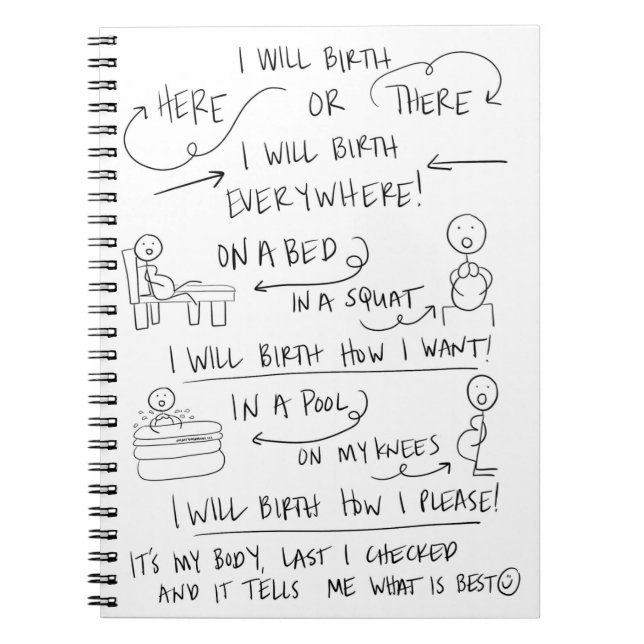 I WILL BIRTH
HERE OR THERE
I WILL BIRTH
EVERYWHERE!
ON A BED
IN A SQUAT
I WILL BIRTH HOW I WANT!
IN A POOL
ON MY KNEES
I WILL BIRTH HOW I PLEASE!
IT'S MY BODY, LAST I CHECKED
AND IT TELLS ME WHAT IS BEST